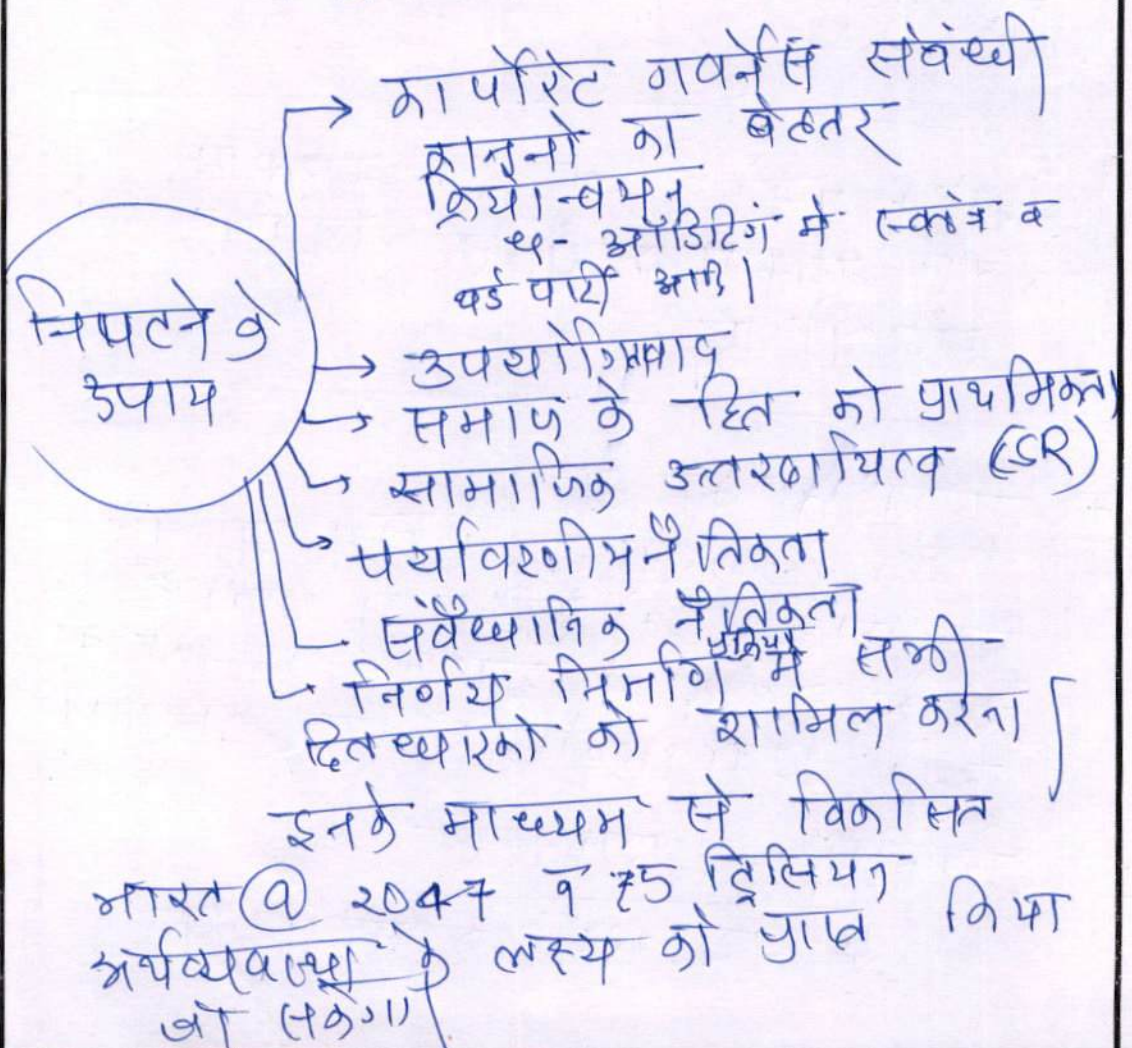 निपटने के
उपाय
कार्पोरेट गवर्नेंस संबंधी
कानूनों का बेहतर
क्रियान्वयन
ऑडिटिंग में स्वतंत्र व
थर्ड पार्टी आदि।
उपयोगितावाद
समाज के हित को प्राथमिकता
सामाजिक उत्तरदायित्व (CSR)
पर्यावरणीय नैतिकता
संवैधानिक नैतिकता
निर्णय निर्माण में सभी
हितधारकों को शामिल करना
इनके माध्यम से विकसित
भारत @ 2047 व 5 ट्रिलियन
अर्थव्यवस्था के लक्ष्य को प्राप्त किया
जा सकेगा।